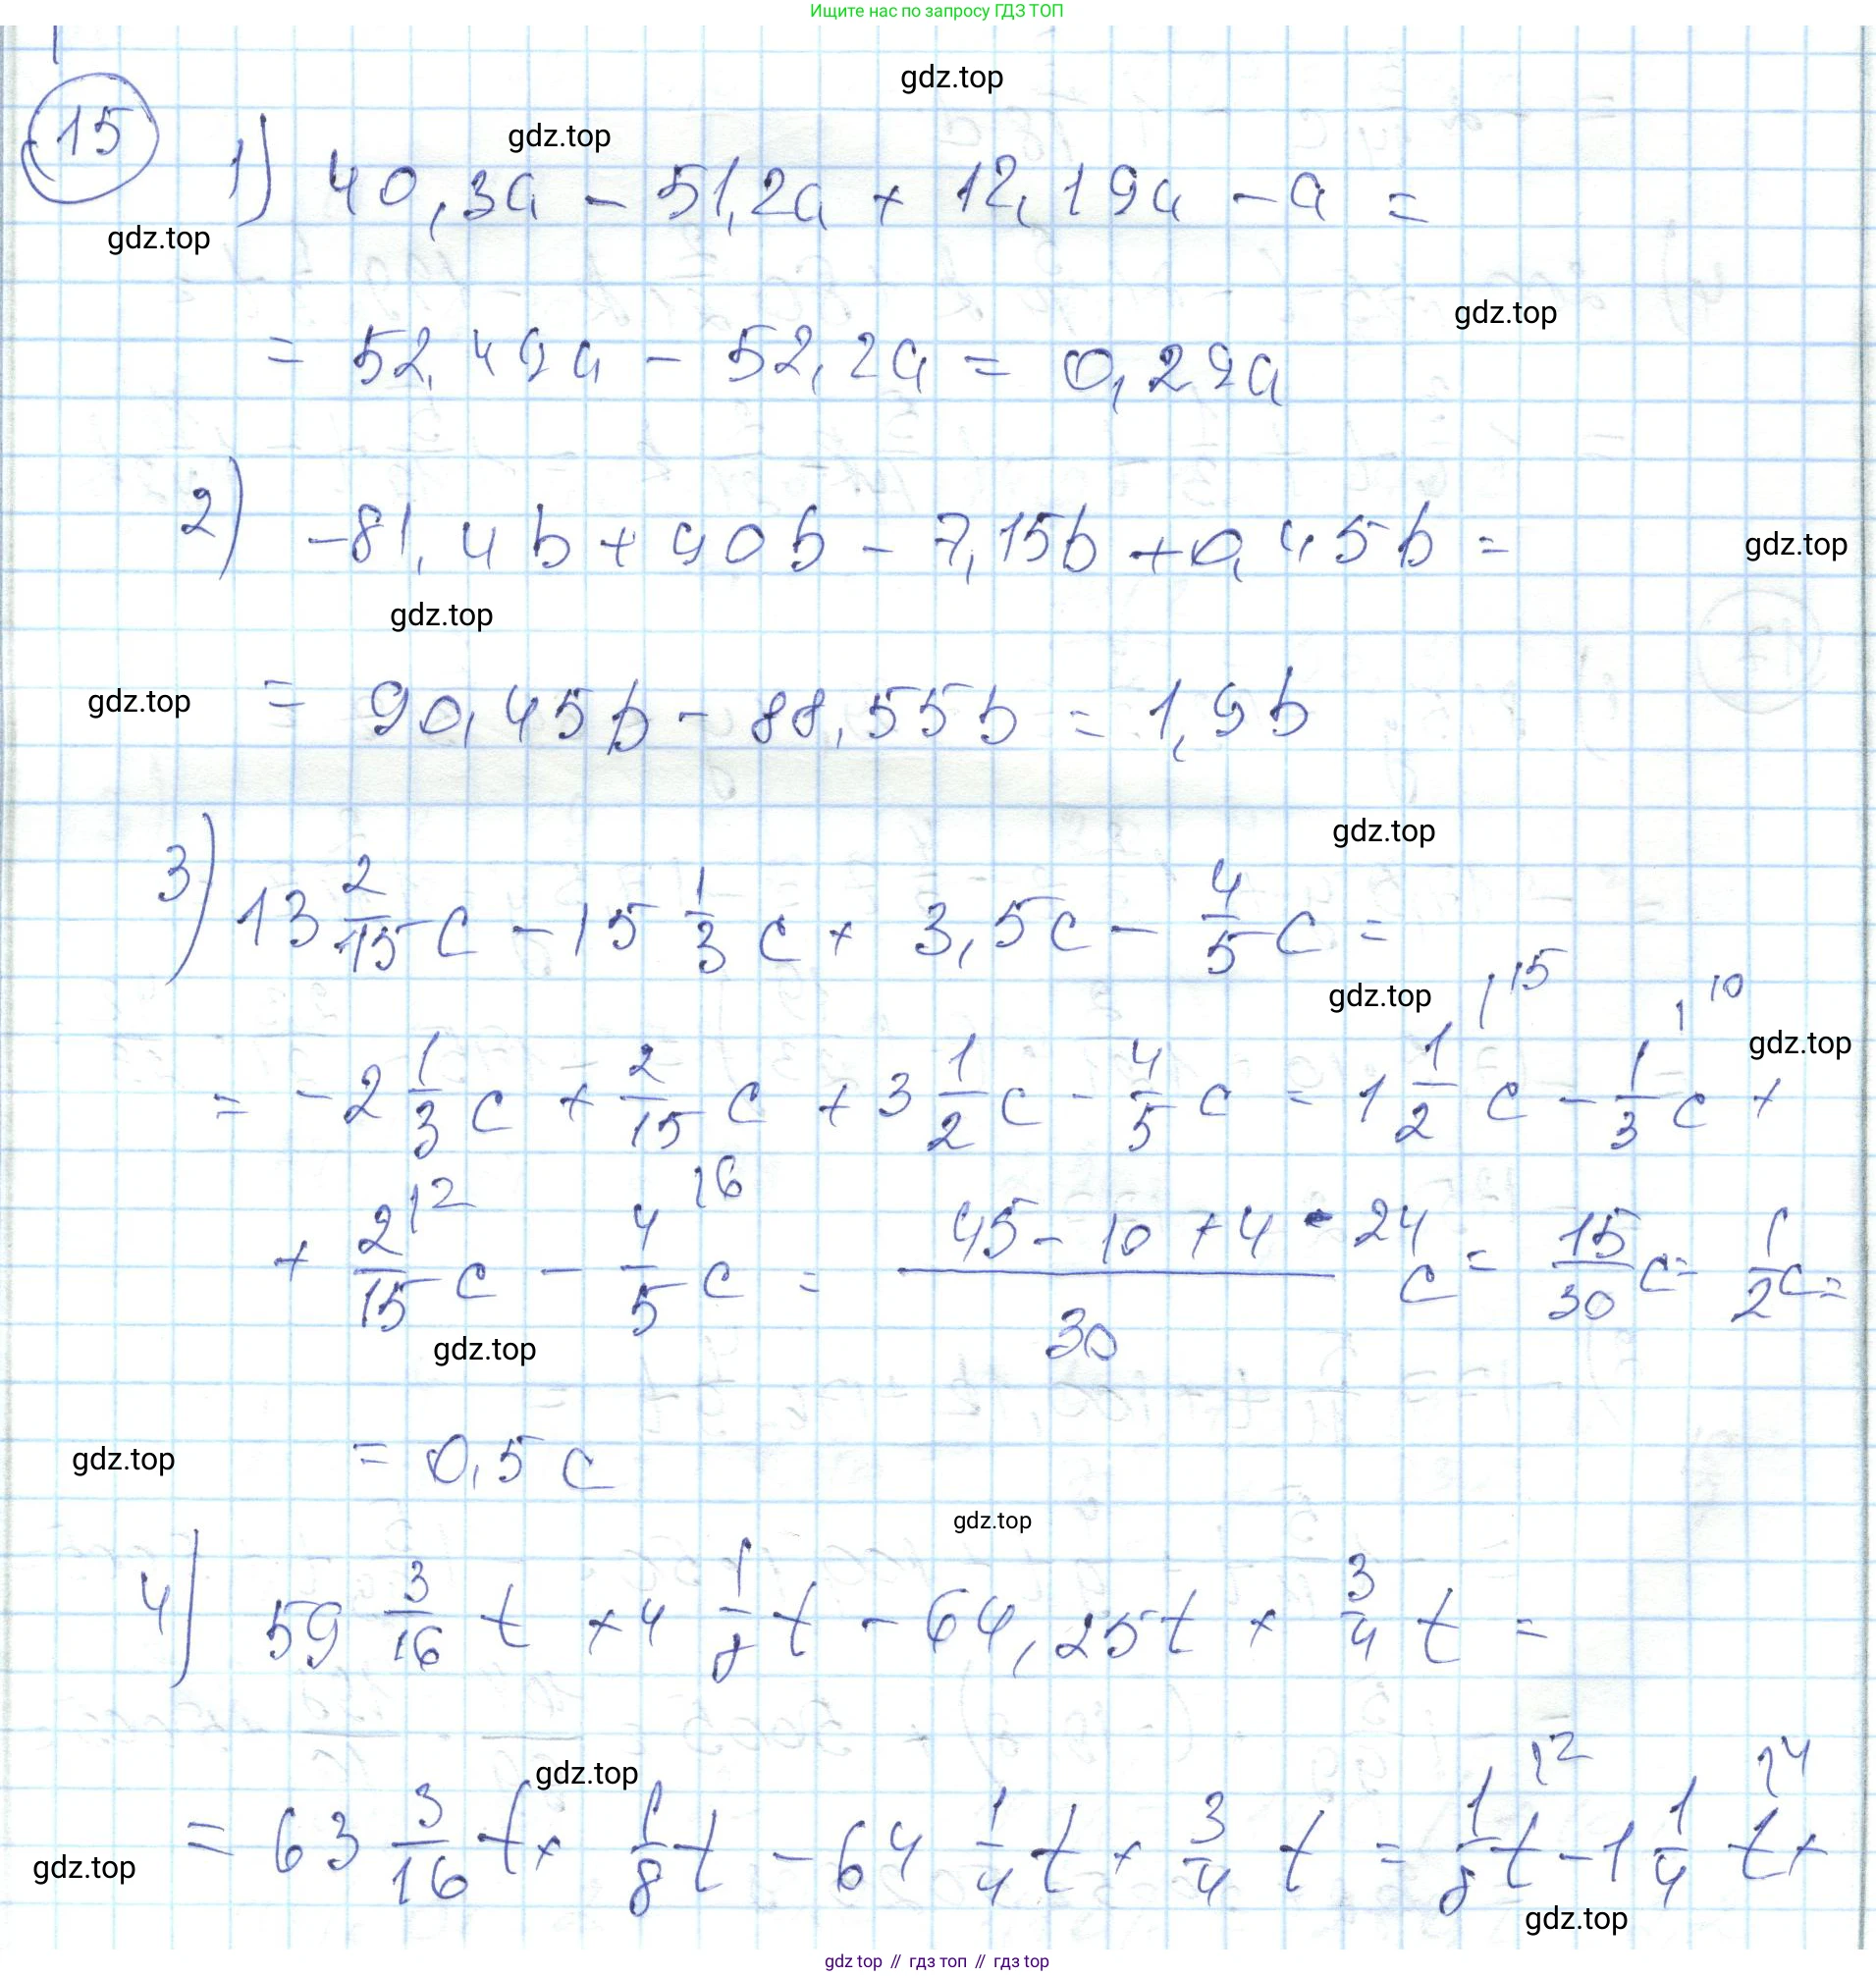 Ищите нас по запросу ГДЗ ТОП
gdz.top
15
gdz.top
1) 40,3a - 51,2a + 12,19a - a =
gdz.top
gdz.top
= 52,49a - 52,2a = 0,29a
2) -81,4b + 90b - 7,15b + 0,45b =
gdz.top
gdz.top
gdz.top
= 90,45b - 88,55b = 1,9b
gdz.top
3) 13 2/15 c - 15 1/3 c + 3,5c - 4/5 c =
gdz.top
gdz.top
= -2 1/3 c + 2/15 c + 3 1/2 c - 4/5 c = 1 1/2 \15 c - 1/3 \10 c +
+ 2/15 \2 c - 4/5 \6 c = (45 - 10 + 4 - 24)/30 c = 15/30 c = 1/2 c =
gdz.top
gdz.top
= 0,5 c
gdz.top
4) 59 3/16 t + 4 1/8 t - 64,25t + 3/4 t =
gdz.top
= 63 3/16 t + 1/8 t - 64 1/4 t + 3/4 t = 1/8 \2 t - 1 1/4 \4 t +
gdz.top
gdz.top
gdz top // гдз топ // gdz top